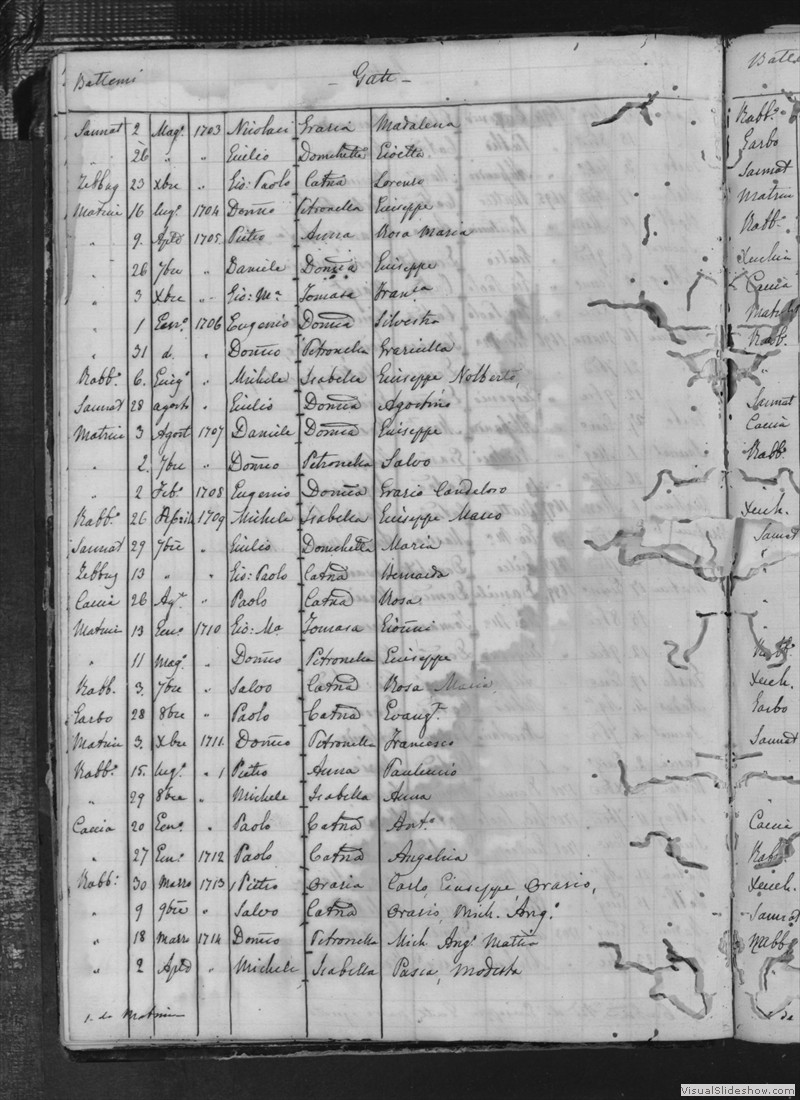 Battemi - Gatt -
Sannat 2 Magº 1703 Nicolaci Grazia Madalena
" 26 " " Giulio Domchettª Gioetta
Zebbug 23 Xbre " Gio: Paolo Catnª Lorenzo
Matrice 16 lugº 1704 Domco Petronella Giuseppe
" 9 Aple 1705 Pietro Anna Rosa Maria
" 26 7bre " Daniele Domca Giuseppe
" 3 Xbre " Gio: Mª Tomasa Franca
" 1 Genº 1706 Eugenio Domca Silvestra
" 31 d. " Domco Petronella Graziella
Rabbº 6 Giugº " Michele Isabella Giuseppe Nolberto
Sannat 28 agosto " Giulio Domca Agostino
Matrice 3 Agost 1707 Daniele Domca Giuseppe
" 2 7bre " Domco Petronella Salvo
" 2 Febº 1708 Eugenio Domca Grazio Candeloro
Rabbº 26 Aprile 1709 Michele Isabella Giuseppe Marco
Sannat 29 7bre " Giulio Domchetta Maria
Zebbug 13 " " Gio: Paolo Catnª Bernarda
Caccia 26 Agº " Paolo Catnª Rosa
Matrice 13 Genº 1710 Gio: Mª Tomasa Gionni
" 11 Magº " Domco Petronella Giuseppe
Rabb. 3 7bre " Salvo Catnª Rosa Maria
Garbo 28 8bre " Paolo Catnª Evangtª
Matrice 3 Xbre 1711 Domco Petronella Francesco
Rabbº 15 lugº " 1 Pietro Anna Paulucio
" 29 8bre " Michele Isabella Anna
Caccia 20 Genº " Paolo Catnª Antº
" 27 Genº 1712 Paolo Catnª Angelica
Rabbº 30 Marzo 1713 Pietro Orazia Carlo, Giuseppe, Orazio,
" 9 9bre " Salvo Catnª Orazio, Mich. Angº
" 18 Marzo 1714 Domco Petronella Mich Angº Mattia
" 2 Aple " Michele Isabella Pasca, Modesta
1. da Matrice
Batte
Rabbº
Garbo
Sannat
Matrice
Rabbº
Xeuchia
Caccia
Rabb.
"
Sannat
Caccia
Rabbº
Xeuch.
Sannat
"
"
Rabbº
Xeuch.
Garbo
Sannat
Caccia
Rabb
Xeuch.
Sannat
Rabbº
"
VisualSlideshow.com